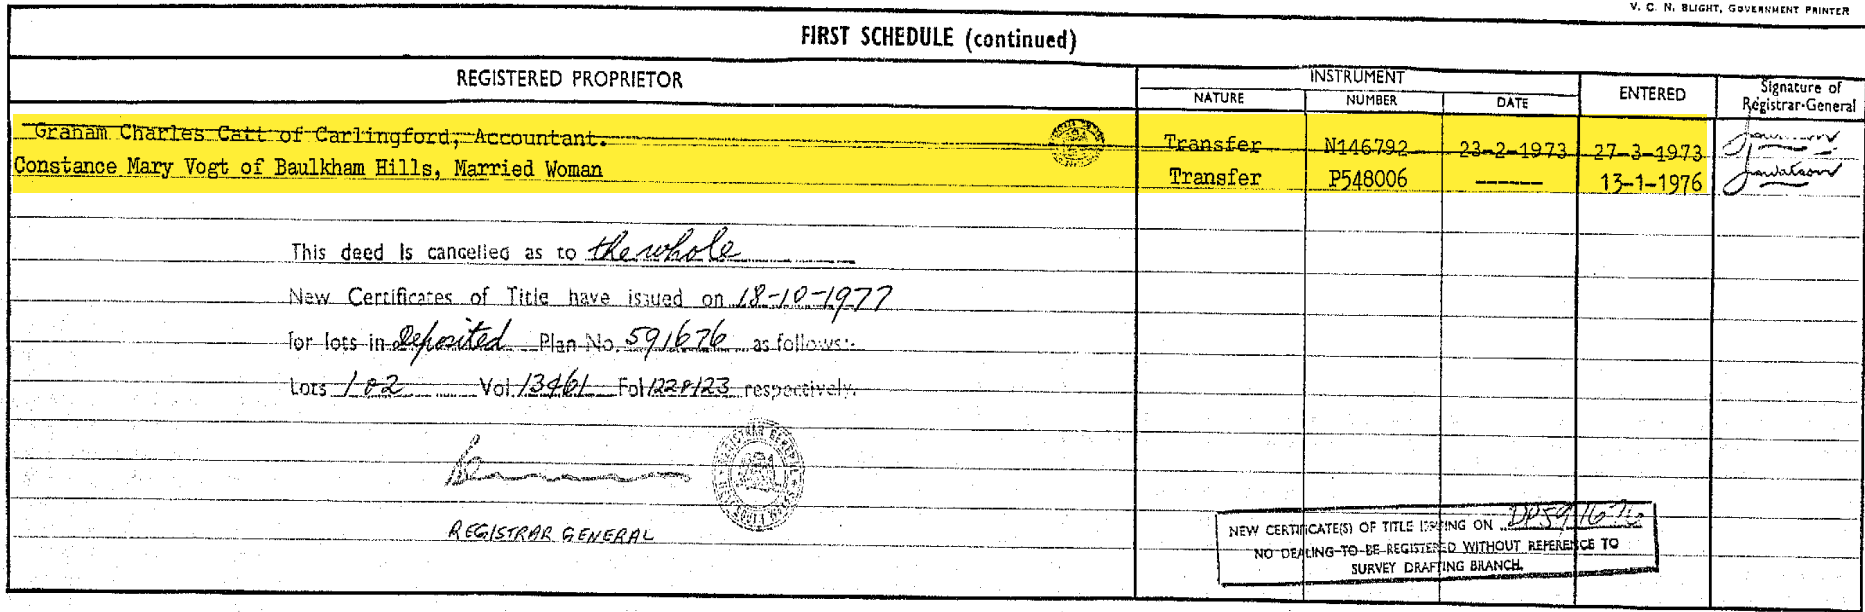 V. C. N. BLIGHT, GOVERNMENT PRINTER
FIRST SCHEDULE (continued)
REGISTERED PROPRIETOR
INSTRUMENT
NATURE
NUMBER
DATE
ENTERED
Signature of
Registrar-General
Graham Charles Catt of Carlingford, Accountant.
Transfer
N146792
23-2-1973
27-3-1973
Constance Mary Vogt of Baulkham Hills, Married Woman
Transfer
P548006
------
13-1-1976
This deed is cancelled as to the whole
New Certificates of Title have issued on 18-10-1977
for lots in Deposited Plan No. 591676 as follows:-
Lots 1 & 2 Vol 13461 Fol 122 & 123 respectively.
REGISTRAR GENERAL
NEW CERTIFICATE(S) OF TITLE ISSUING ON DP591676
NO DEALING TO BE REGISTERED WITHOUT REFERENCE TO
SURVEY DRAFTING BRANCH.